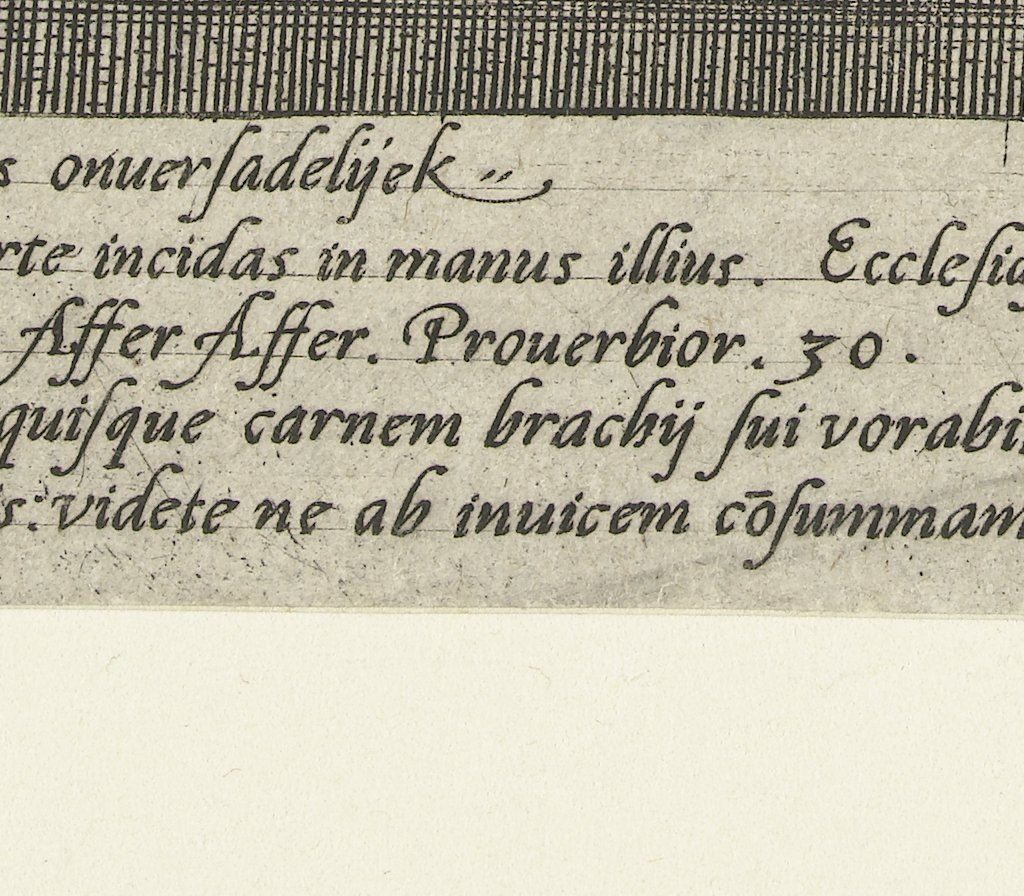 s onuerſadelijek
rte incidas in manus illius. Eccleſia
Affer Affer. Prouerbior. 30.
quiſque carnem brachij ſui vorabi
s: videte ne ab inuicem cōſummam